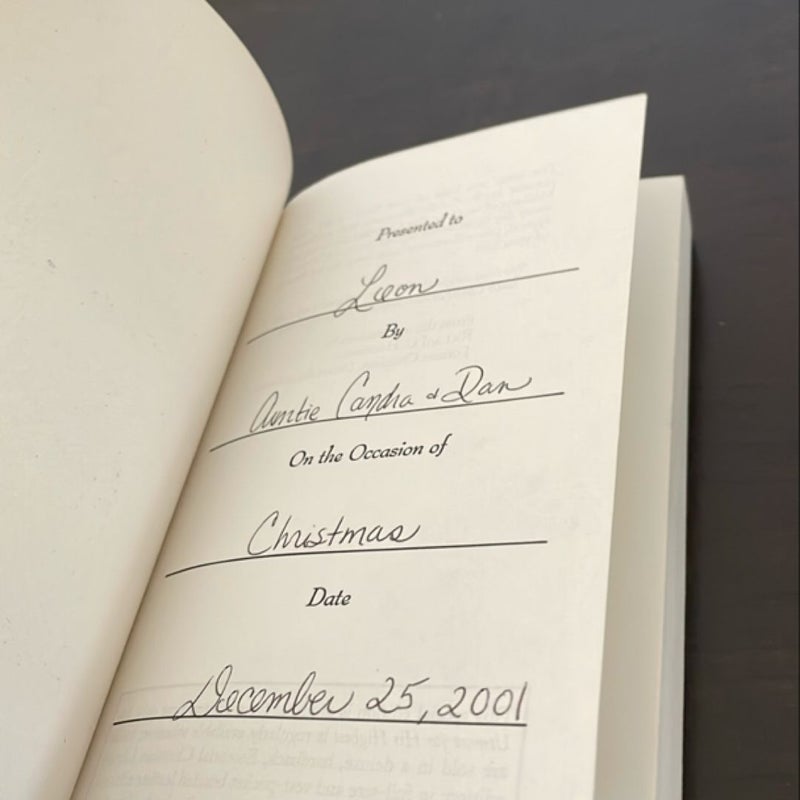 Presented to
Leeon
By
Auntie Candra & Dan
On the Occasion of
Christmas
Date
December 25, 2001